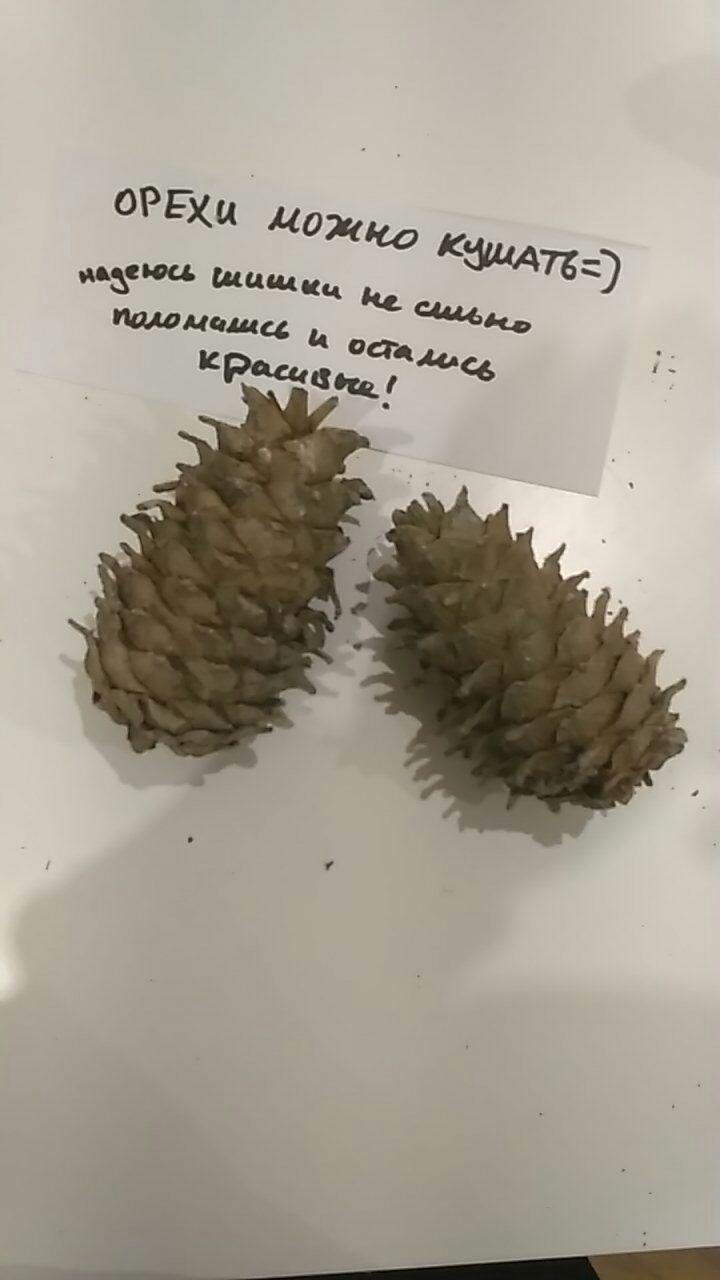 ОРЕХИ МОЖНО КУШАТЬ=)
надеюсь шишки не сильно
поломались и остались
красивые!